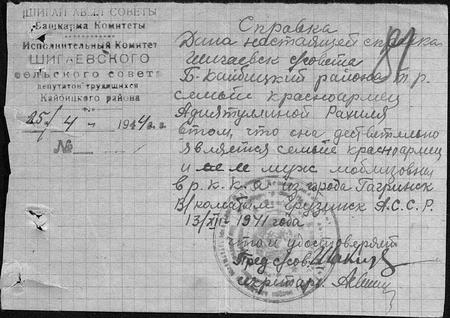 ШИГАЙ АВЫЛ СОВЕТЫ
Башкарма Комитеты
Исполнительный Комитет
ШИГАЕВСКОГО
сельского совета
депутатов трудящихся
Кайбицкого района
25/4 - 1944 г.
№
Справка
Дана настоящей справка
Шигаевск
Б-Кайбицкий района Т.Р.
семьи красноармец
Адиятуллиной Рахиля
в том, что она действительно
является семьи красноармец
и ее муж моблизован
в р.к.к.а из города Гагринск
В/Коматом Грузинск А.С.С.Р.
13/XII - 1941 года
что и удостоверяет
Пред с/сов
секретарь